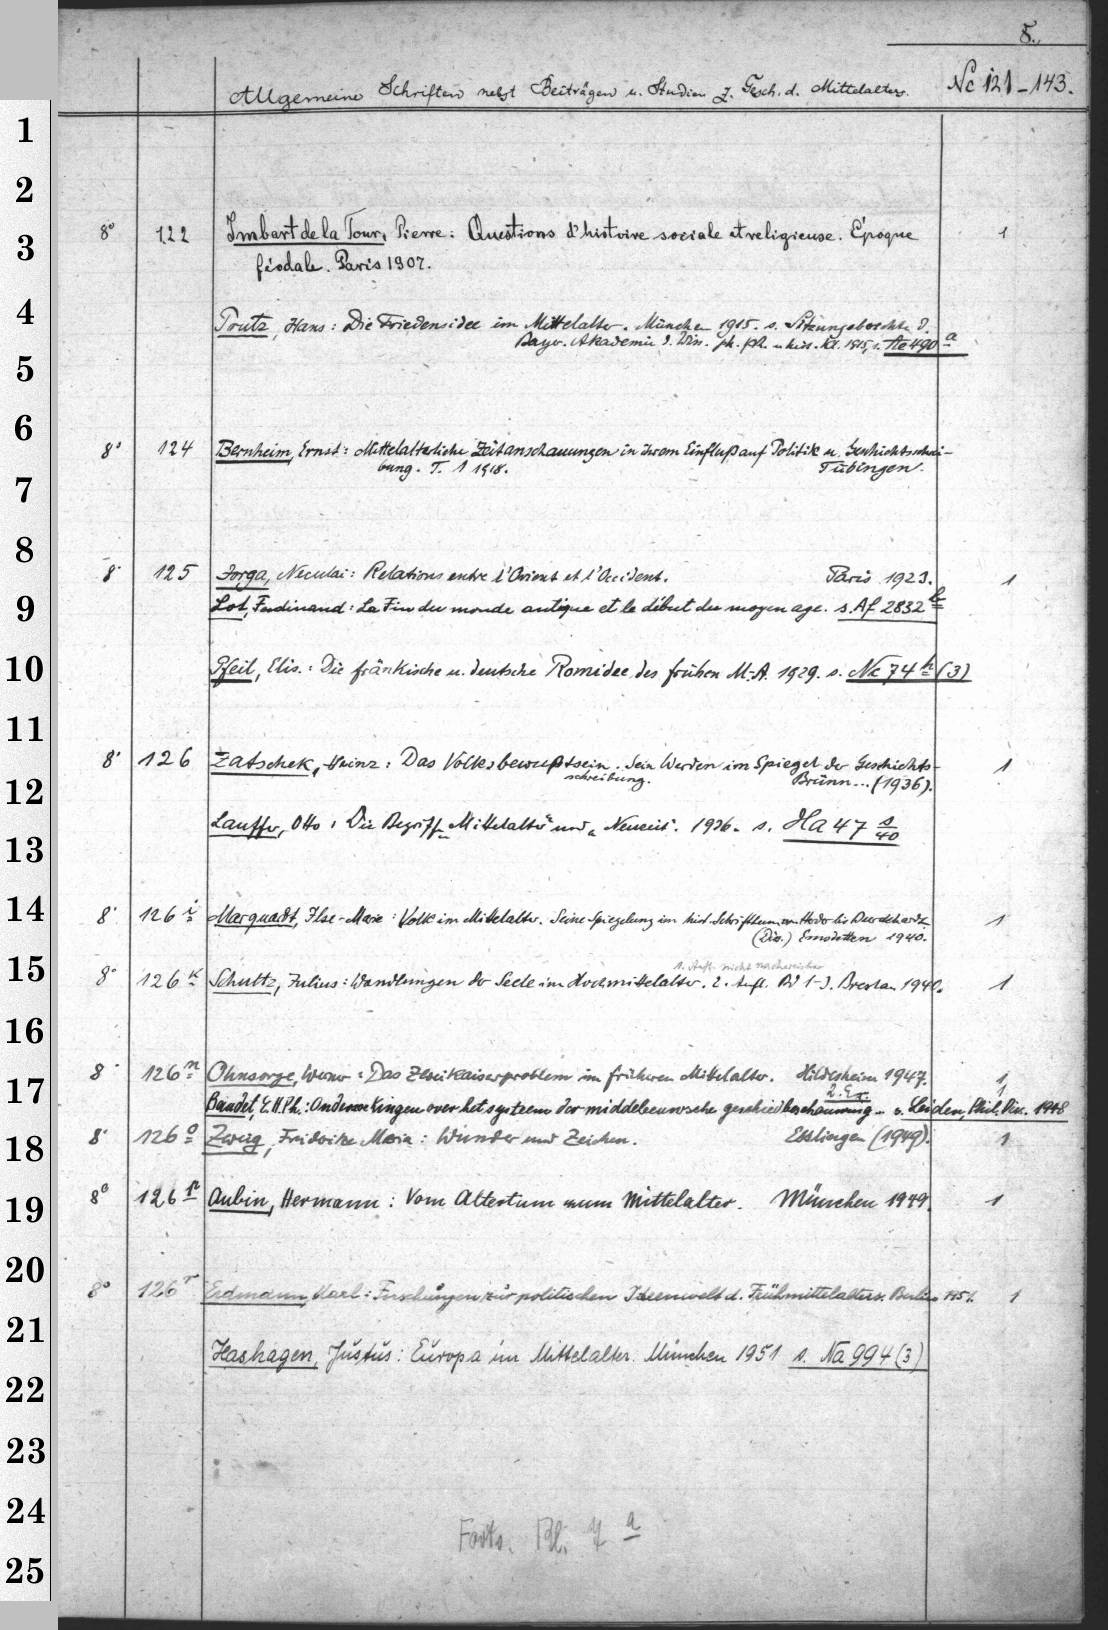 8.
Allgemeine Schriften nebst Beiträgen u. Studien z. Gesch. d. Mittelalters. Nc 121-143.
1
2
3
8° 122 Imbart de la Tour, Pierre: Questions d'histoire sociale et religieuse. Époque 1
féodale. Paris 1907.
4
Prutz, Hans: Die Friedensidee im Mittelalter. München 1915. s. Sitzungsberichte d.
Bayr. Akademie d. Wiss. ph. ph. u. hist. Kl. 1915, s. Ae 490 a
5
6
8° 124 Bernheim, Ernst: Mittelalterliche Zeitanschauungen in ihrem Einfluß auf Politik u. Geschichtsschrei-
bung. T. 1 1918. Tübingen.
7
8
8° 125 Jorga, Neculai: Relations entre l'Orient et l'Occident. Paris 1923. 1
9
Lot, Ferdinand: La Fin du monde antique et le début du moyen age. s. Af 2832 b
10
Pfeil, Elis.: Die fränkische u. deutsche Romidee des frühen M.-A. 1929. s. Nc 74 h (3)
11
8° 126 Zatschek, Heinz: Das Volksbewußtsein. Sein Werden im Spiegel der Geschichts- 1
schreibung. Brünn... (1936).
12
Lauffer, Otto: Die Begriffe „Mittelalter" und „Neuzeit". 1936. s. Ha 47 s/40
13
14
8° 126 i Marquardt, Ilse-Marie: Volk im Mittelalter. Seine Spiegelung im hist. Schrifttum von Herder bis 1
(Diss.) Emsdetten 1940.
15
1. Aufl. nicht nachweisbar
8° 126 k Schultz, Julius: Wandlungen der Seele im Hochmittelalter. 2. Aufl. Bd 1-3. Breslau 1940. 1
16
8° 126 n Ohnsorge, Werner: Das Zweikaiserproblem im früheren Mittelalter. Hildesheim 1947. 1
2. Ex. 1
17
Baudet, E.H.Ph.: Onderzoekingen over het systeem der middeleeuwsche geschiedbeschouwing s. Leiden, Phil. Diss. 1948
8° 126 o Zweig, Friderike Maria: Wunder und Zeichen. Esslingen (1949). 1
18
8° 126 p Aubin, Hermann: Vom Altertum zum Mittelalter. München 1949. 1
19
20
8° 126 r Erdmann, Karl: Forschungen zur politischen Ideenwelt d. Frühmittelalters. Berlin 1951. 1
21
Hashagen, Justus: Europa im Mittelalter. München 1951 s. Na 994 (3)
22
23
24
Forts. Bl. 7 a
25